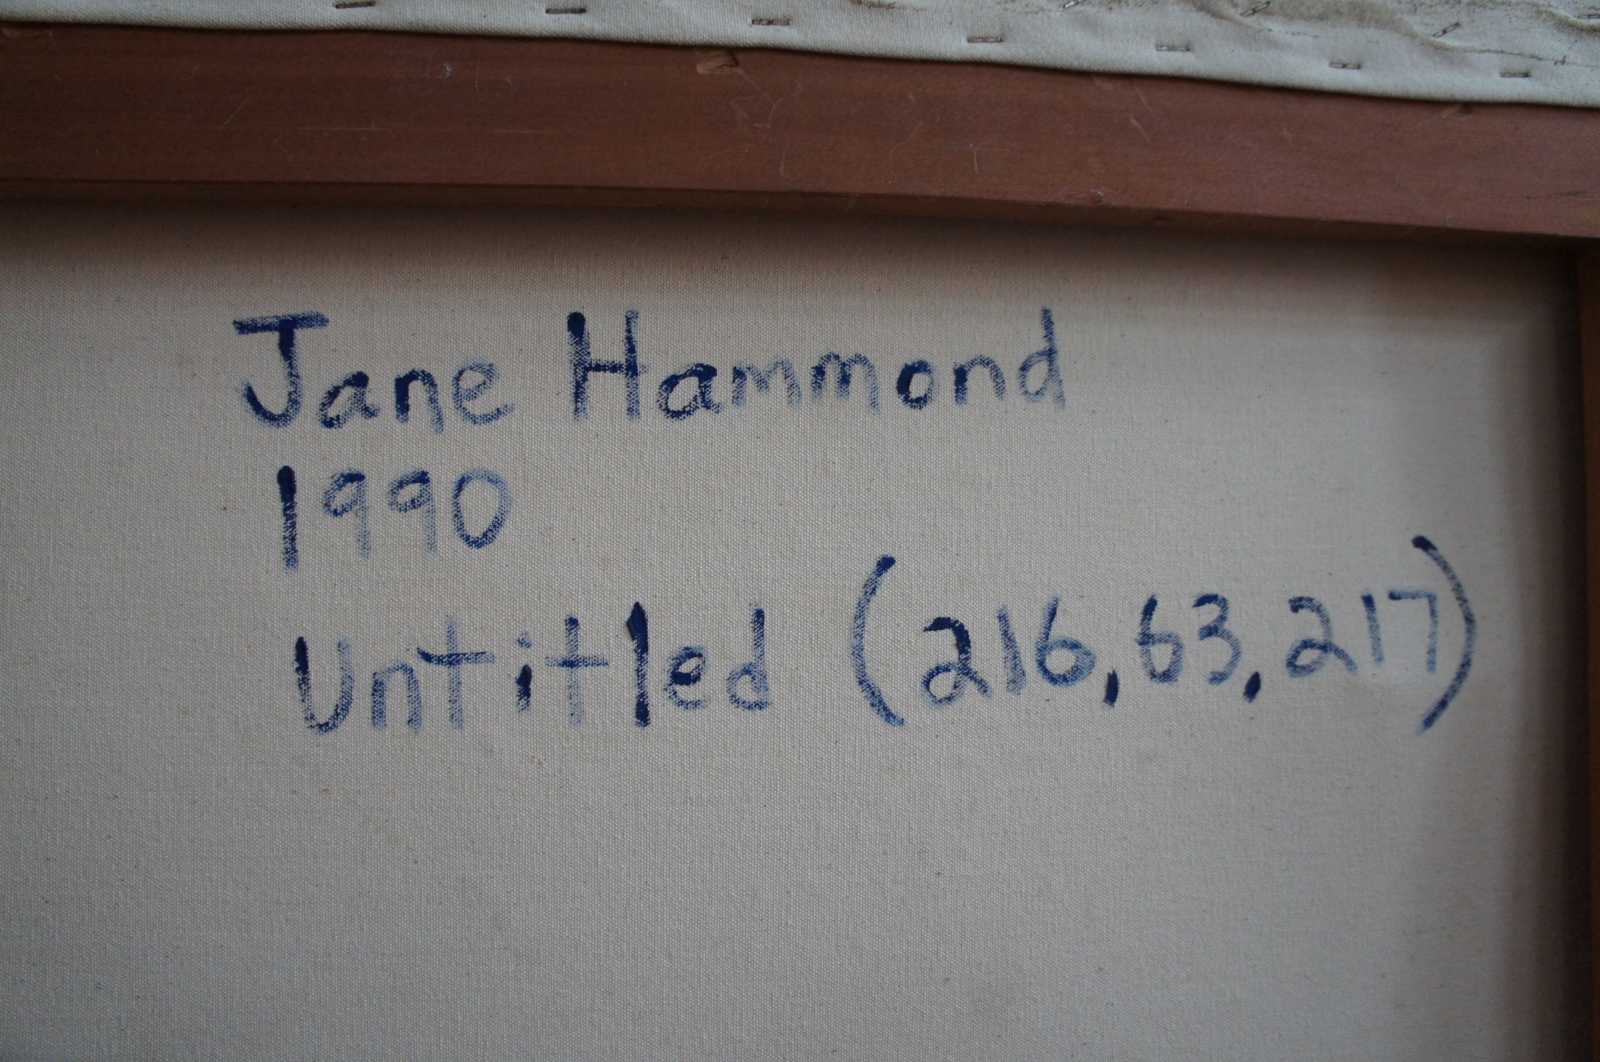 Jane Hammond
1990
Untitled (216,63,217)